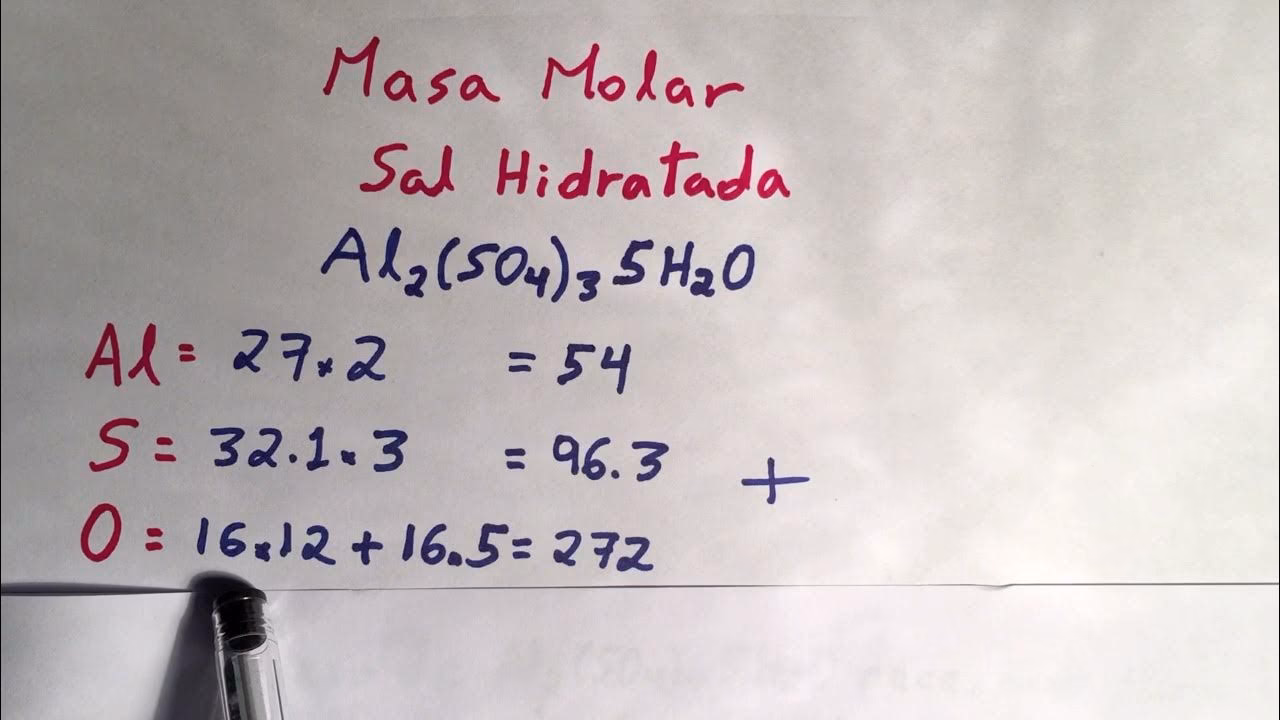 Masa Molar
Sal Hidratada
Al₂(SO₄)₃ 5H₂O
Al = 27 × 2 = 54
S = 32.1 × 3 = 96.3 +
O = 16 × 12 + 16 . 5 = 272